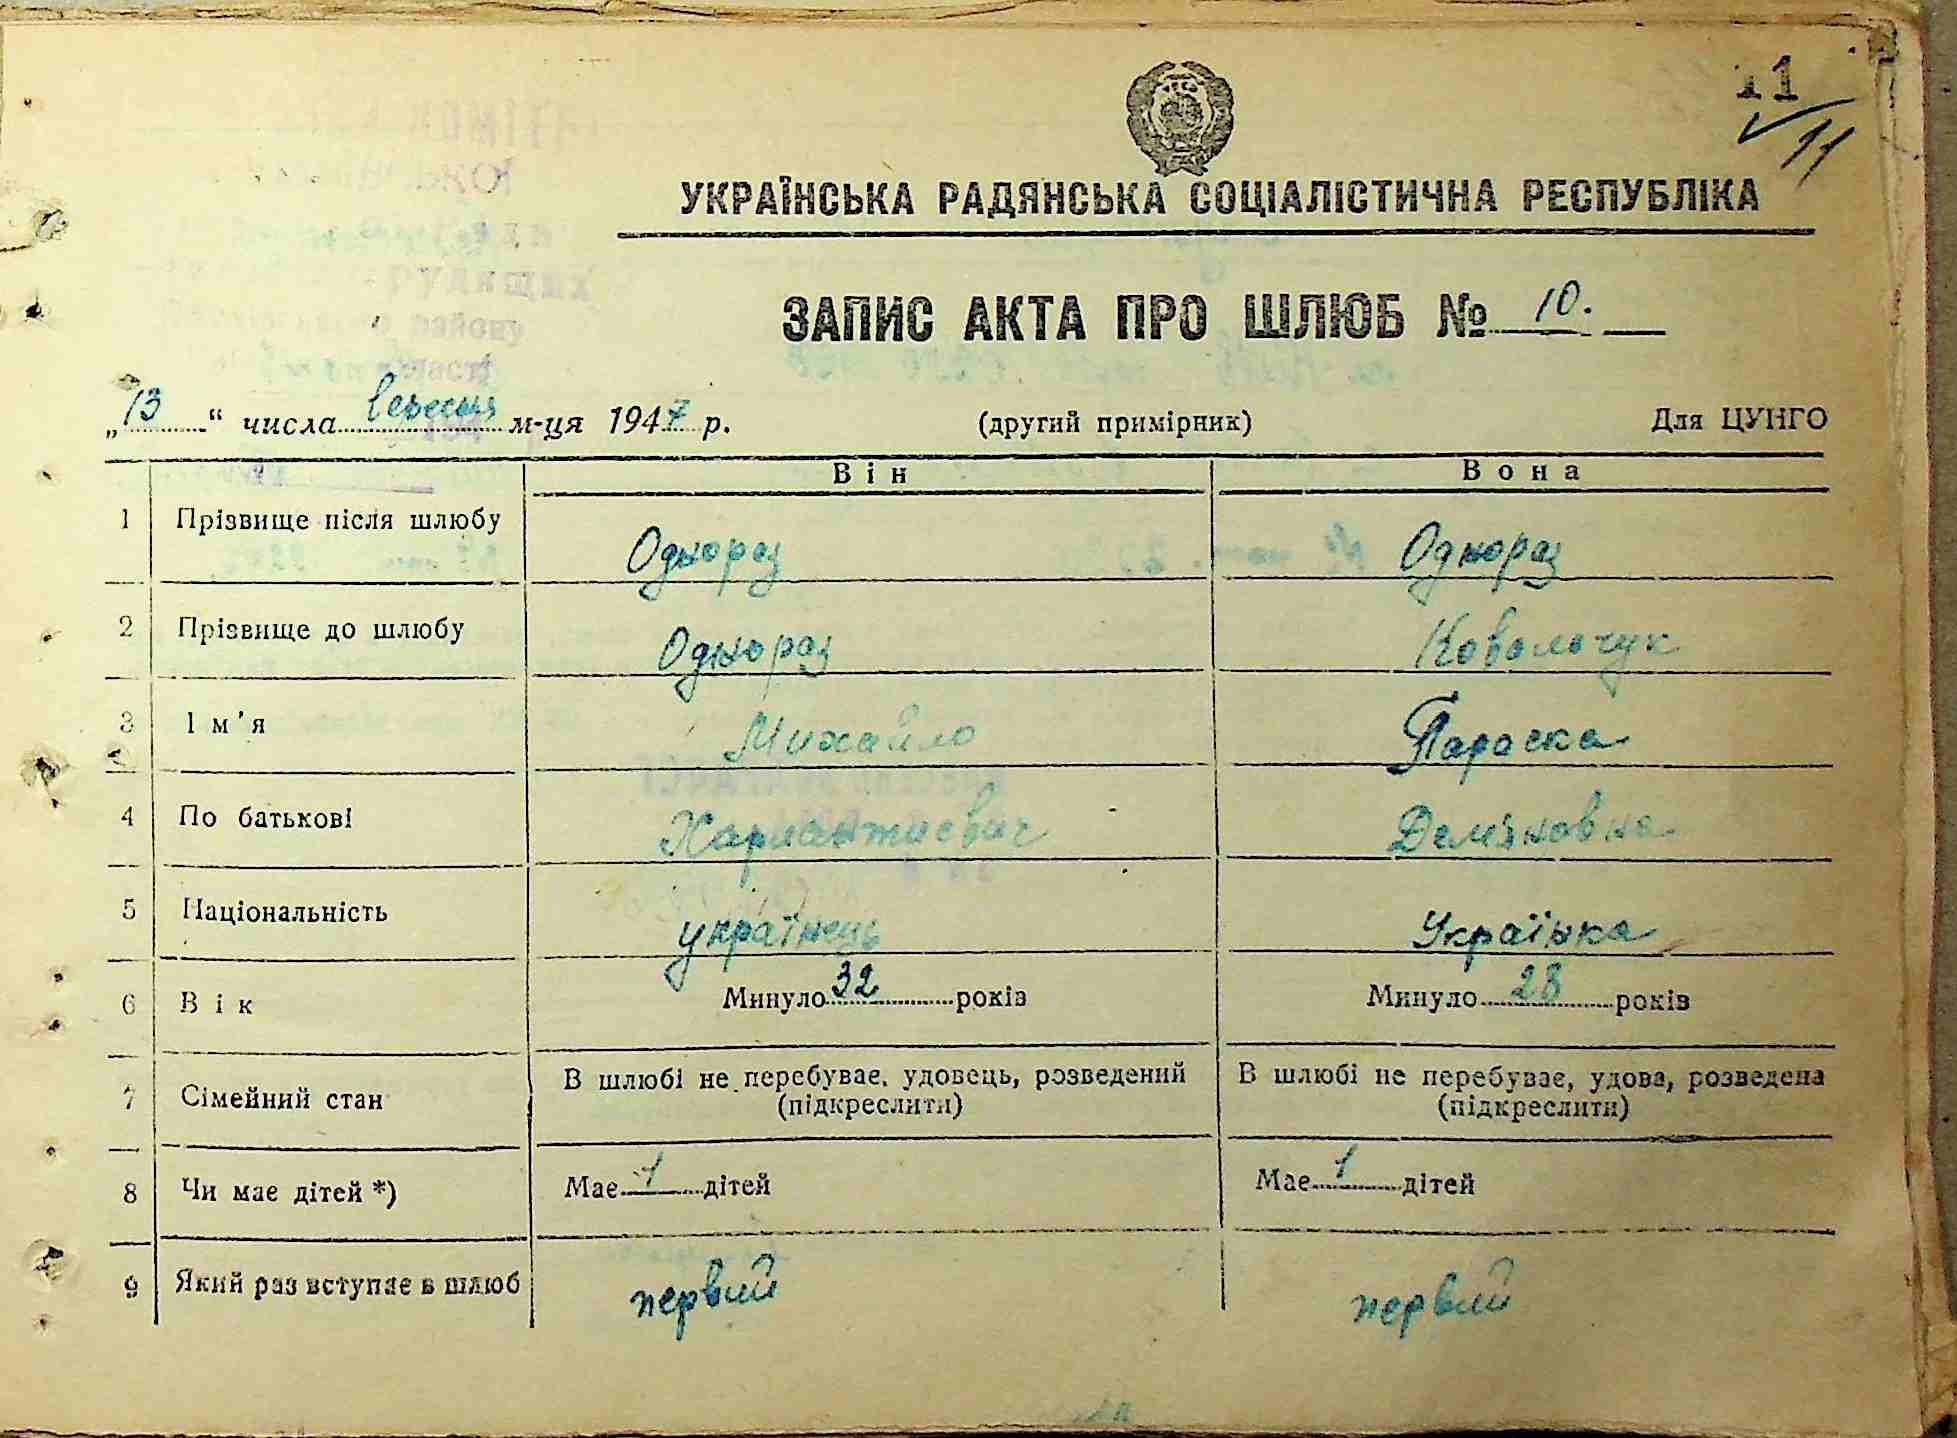 11
11
УКРАЇНСЬКА РАДЯНСЬКА СОЦІАЛІСТИЧНА РЕСПУБЛІКА
ЗАПИС АКТА ПРО ШЛЮБ № 10.
„13“ числа вересня м-ця 1947 р. (другий примірник) Для ЦУНГО
Він Вона
1 Прізвище після шлюбу Однораз Однораз
2 Прізвище до шлюбу Однораз Ковальчук
3 Ім'я Михайло Параска
4 По батькові Харлантиевич Демяновна
5 Національність українець Українка
6 Вік Минуло 32 років Минуло 28 років
7 Сімейний стан В шлюбі не перебуває, удовець, розведений (підкреслити) В шлюбі не перебуває, удова, розведена (підкреслити)
8 Чи має дітей *) Має 1 дітей Має 1 дітей
9 Який раз вступає в шлюб первий первий